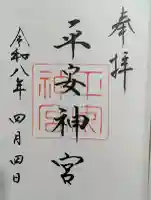 奉拝
平安神宮
令和八年四月四日